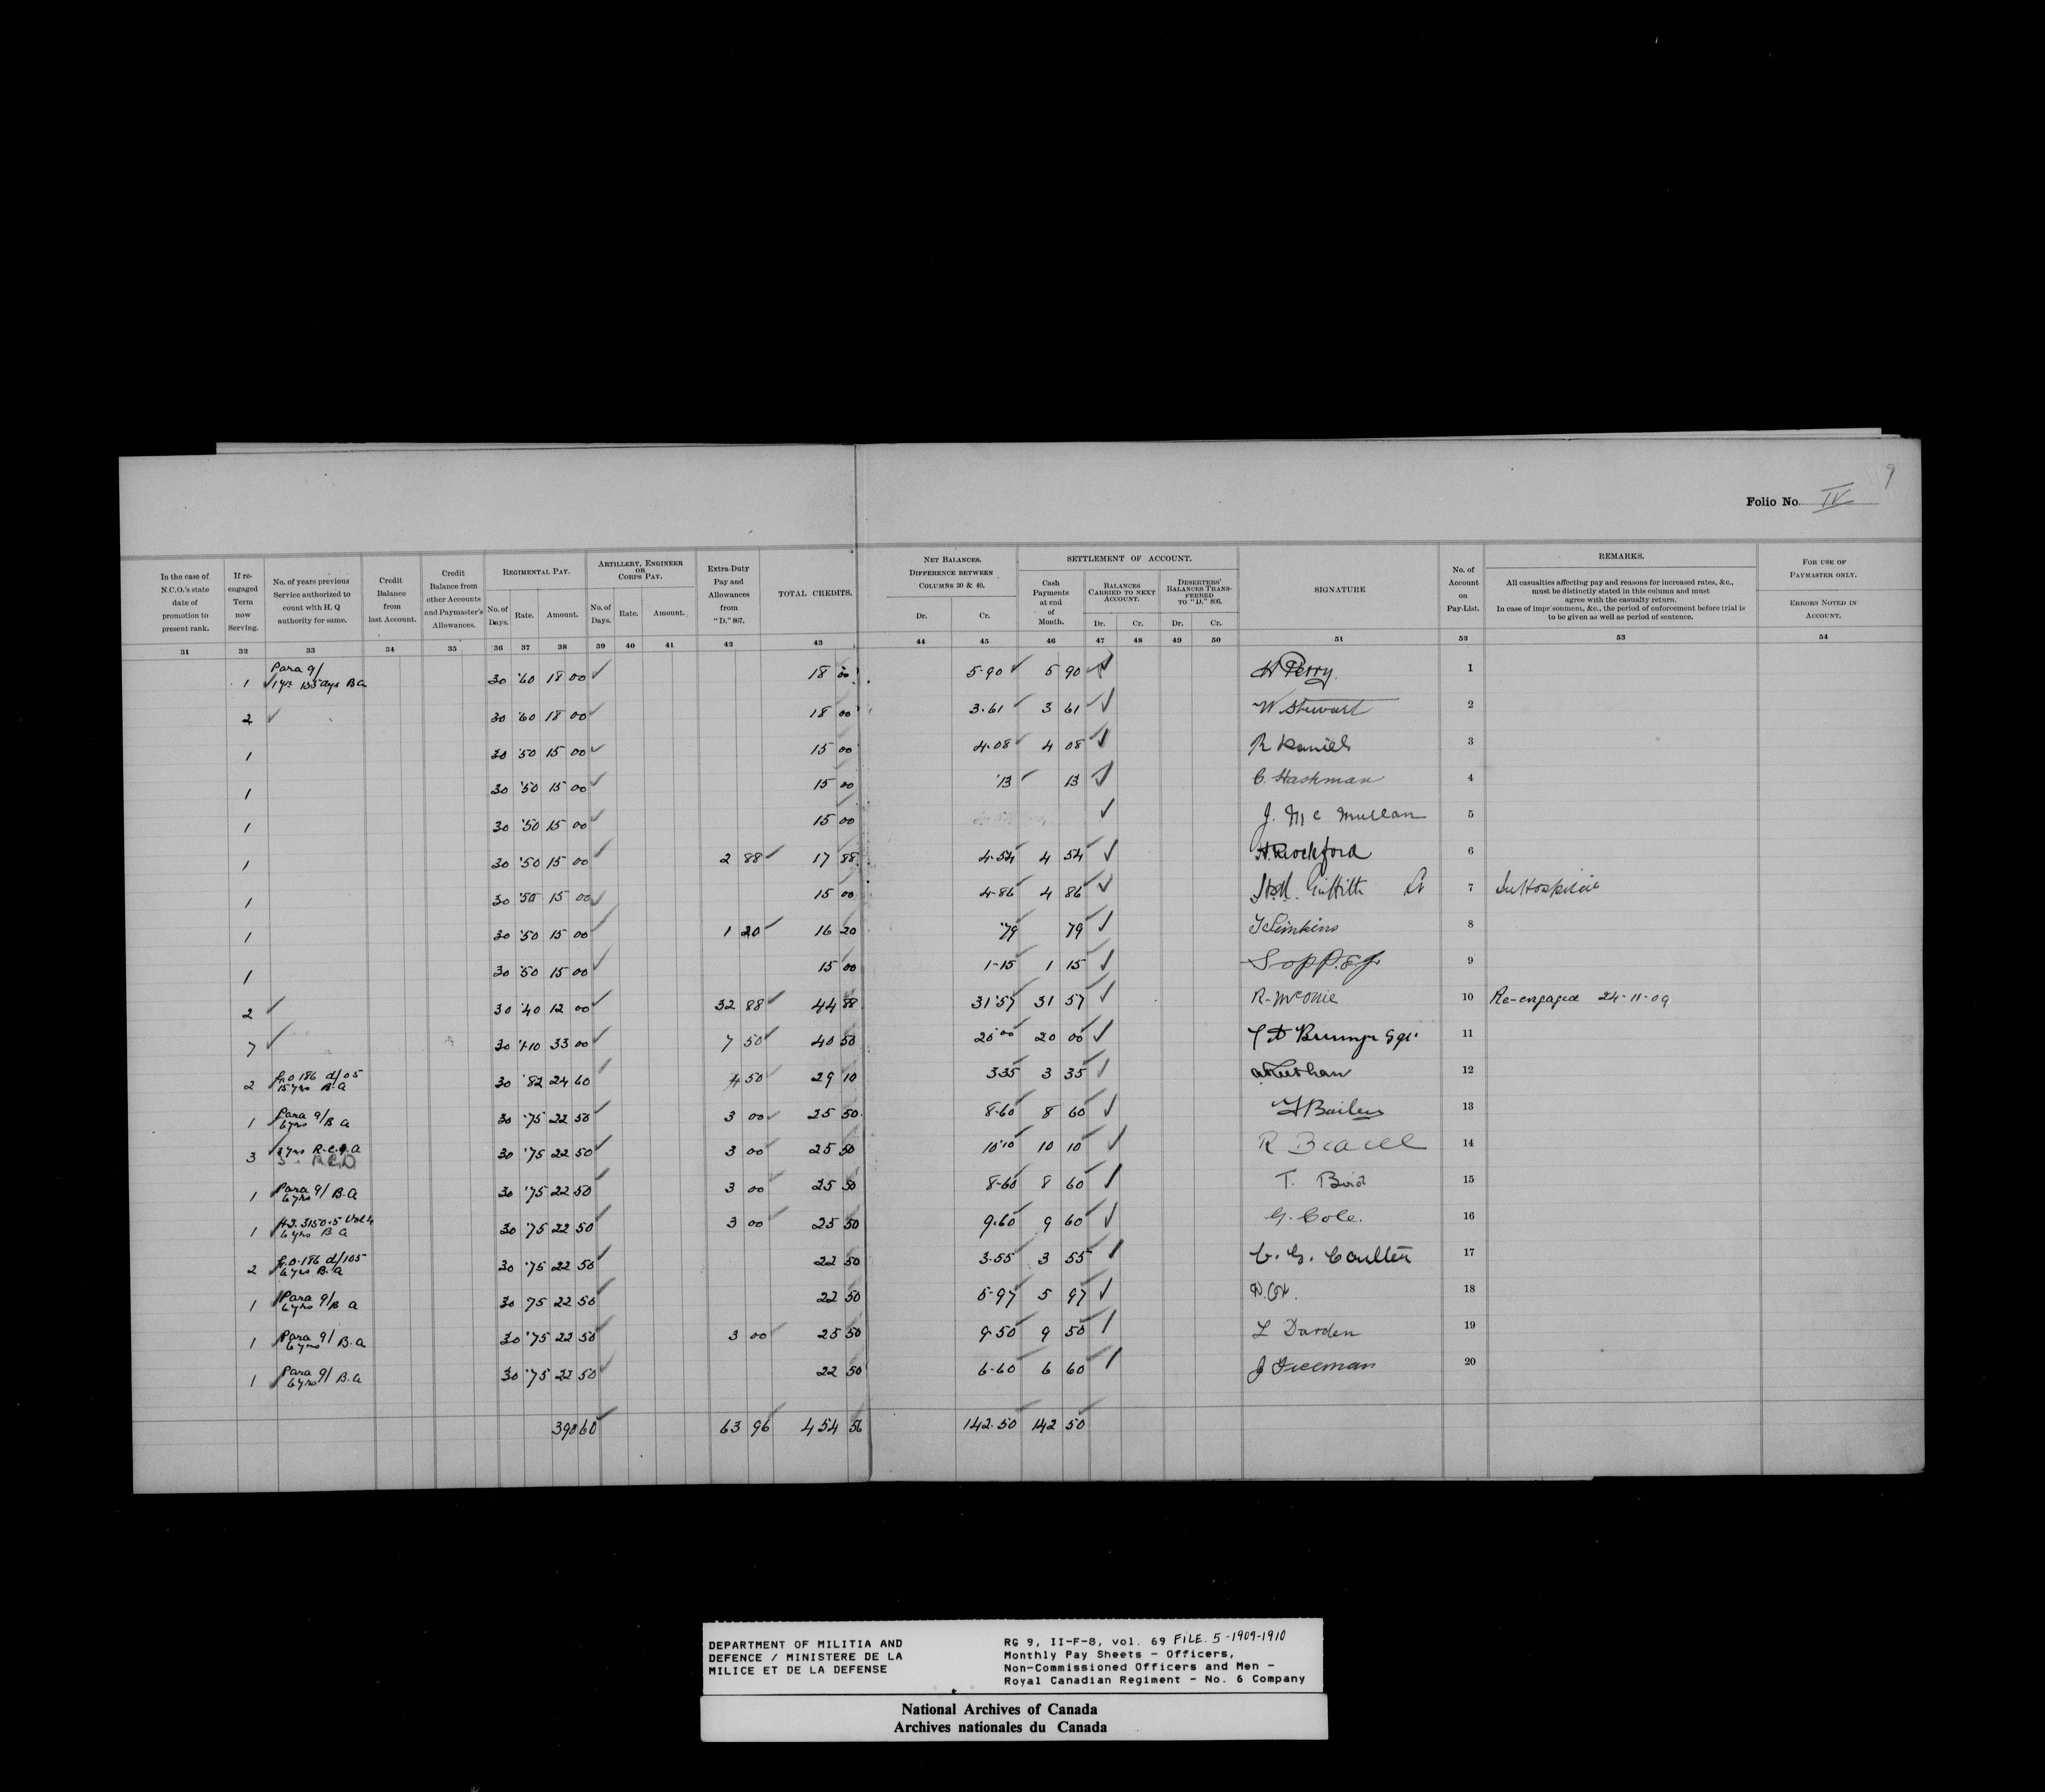 9
Folio No. IV
In the case of N.C.O.'s state date of promotion to present rank.
If re-engaged Term now Serving.
No. of years previous Service authorized to count with H. Q authority for same.
Credit Balance from last Account.
Credit Balance from other Accounts and Paymaster's Allowances.
REGIMENTAL PAY.
No. of Days. Rate. Amount.
ARTILLERY, ENGINEER OR CORPS PAY.
No. of Days. Rate. Amount.
Extra-Duty Pay and Allowances from "D." 807.
TOTAL CREDITS.
NET BALANCES. DIFFERENCE BETWEEN COLUMNS 30 & 40.
Dr. Cr.
SETTLEMENT OF ACCOUNT.
Cash Payments at end of Month.
BALANCES CARRIED TO NEXT ACCOUNT.
Dr. Cr.
DESERTERS' BALANCES TRANSFERRED TO "D." 806.
Dr. Cr.
SIGNATURE
No. of Account on Pay-List.
REMARKS.
All casualties affecting pay and reasons for increased rates, &c., must be distinctly stated in this column and must agree with the casualty return.
In case of imprisonment, &c., the period of enforcement before trial is to be given as well as period of sentence.
FOR USE OF PAYMASTER ONLY.
ERRORS NOTED IN ACCOUNT.
31 32 33 34 35 36 37 38 39 40 41 42 43 44 45 46 47 48 49 50 51 52 53 54
1 Para 9/ 1 yr 135 days B A 30 .60 18 00 18 00 5.90 5 90 H Perry. 1
2 30 .60 18 00 18 00 3.61 3 61 W Stewart 2
1 30 .50 15 00 15 00 4.08 4 08 R Daniels 3
1 30 .50 15 00 15 00 .13 13 C. Hashman 4
1 30 .50 15 00 15 00 J. Mc Mullan 5
1 30 .50 15 00 2 88 17 88 4.54 4 54 H. Rockford 6
1 30 .50 15 00 15 00 4.86 4 86 Griffith 7 In Hospital
1 30 .50 15 00 1 20 16 20 .79 79 Simkins 8
1 30 .50 15 00 15 00 1-15 1 15 Sopp. 9
2 30 .40 12 00 32 88 44 88 31.57 31 57 R. McOnie 10 Re-engaged 24-11-09
7 30 1.10 33 00 7 50 40 50 20.00 20 00 11
2 G.O 186 d/05 15 yrs B.A 30 .82 24 60 4 50 29 10 3.35 3 35 12
1 Para 9/ 6 yrs B A 30 .75 22 50 3 00 25 50 8.60 8 60 Bailey 13
3 R.C.D 30 .75 22 50 3 00 25 50 10.10 10 10 R 14
1 Para 9/ 6 yrs B.A 30 .75 22 50 3 00 25 50 8-60 8 60 T. Bird 15
1 H.Q. 3150.5 Vol 4 6 yrs B A 30 .75 22 50 3 00 25 50 9.60 9 60 G. Cole. 16
2 G.O. 186 d/105 6 yrs B.A 30 .75 22 50 22 50 3.55 3 55 C. G. Coulter 17
1 Para 9/ 6 yrs B A 30 75 22 50 22 50 5-97 5 97 D. Cox. 18
1 Para 9/ 6 yrs B.A 30 .75 22 50 3 00 25 50 9.50 9 50 L Darden 19
1 Para 9/ 6 yrs B.A 30 .75 22 50 22 50 6-60 6 60 J Freeman 20
390 60 63 96 454 56 142.50 142 50
DEPARTMENT OF MILITIA AND
DEFENCE / MINISTERE DE LA
MILICE ET DE LA DEFENSE
RG 9, II-F-8, vol. 69 FILE. 5-1909-1910
Monthly Pay Sheets - Officers,
Non-Commissioned Officers and Men -
Royal Canadian Regiment - No. 6 Company
National Archives of Canada
Archives nationales du Canada